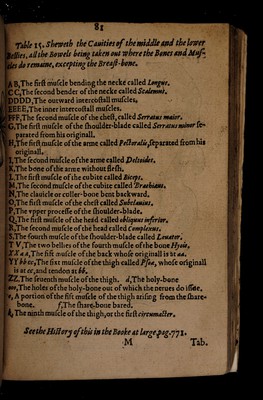 81
Table 15. Sheweth the Cauities of the middle and the lower
Bellies, all the Bowels being taken out where the Bones and Mus-
cles do remaine, excepting the Breast-bone.
A B, The first muscle bending the necke called Longus.
C C, The second bender of the necke called Scalenum.
DDDD, The outward intercostall muscles,
EEEE, The inner intercostall muscles.
FFF, The second muscle of the chest, called Serratus maior.
G, The first muscle of the shoulder-blade called Serratus minor se-
parated from his originall.
H, The first muscle of the arme called Pectoralis, separated from his
originall.
I, The second muscle of the arme called Deltoides.
K, The bone of the arme without flesh.
L, The first muscle of the cubite called Biceps.
M, The second muscle of the cubite called Brachiæus.
N, The clauicle or coller-bone bent backward,
O, The first muscle of the chest called Subclauius.
P, The vpper processe of the shoulder-blade.
Q, The first muscle of the head called obliquus inferior.
R, The second muscle of the head called Complexus.
S, The fourth muscle of the shoulder-blade called Leuator.
T V, The two bellies of the fourth muscle of the bone Hyois,
XX aa, The fift muscle of the back whose originall is at aa.
YY bb cc, The sixt muscle of the thigh called Psoa, whose originall
is at cc, and tendon at bb.
ZZ, The seuenth muscle of the thigh. d, The holy-bone
ooo, The holes of the holy-bone out of which the nerues do issue.
e, A portion of the fift muscle of the thigh arising from the share-
bone. f, The share-bone bared.
k, The ninth muscle of the thigh, or the first circumactor.
See the History of this in the Booke at large, pag. 771.
M Tab.